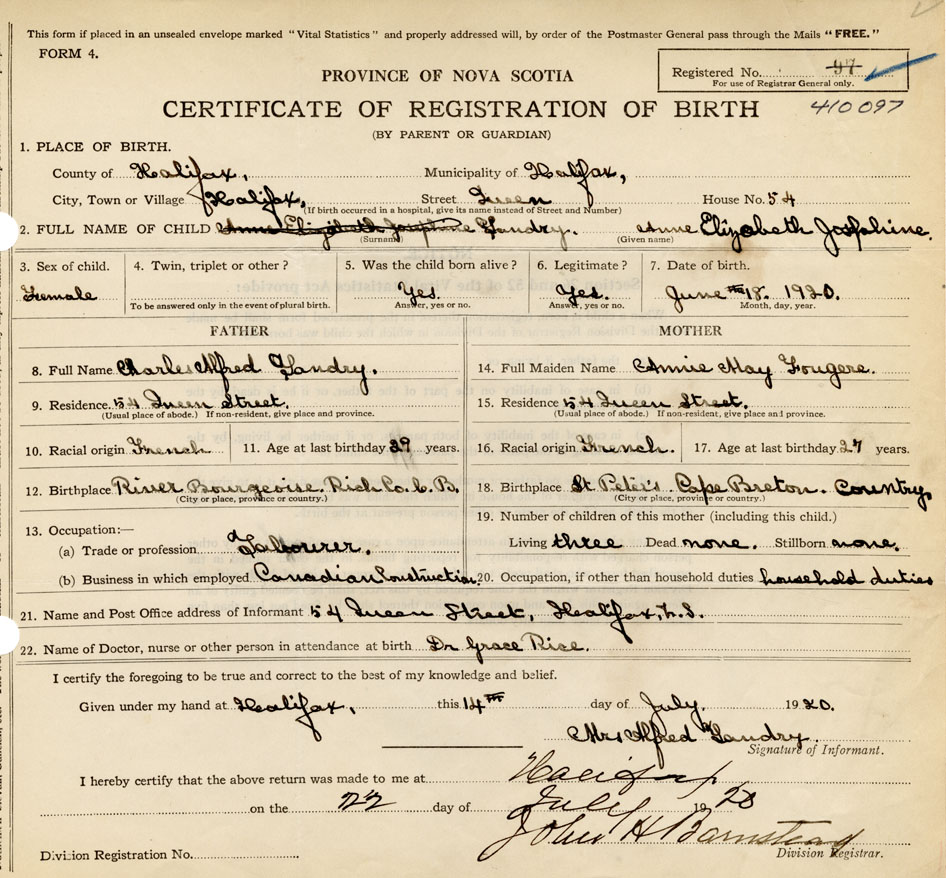 This form if placed in an unsealed envelope marked "Vital Statistics" and properly addressed will, by order of the Postmaster General pass through the Mails "FREE."
FORM 4.
Registered No. 97
For use of Registrar General only.
PROVINCE OF NOVA SCOTIA
CERTIFICATE OF REGISTRATION OF BIRTH 410 097
(BY PARENT OR GUARDIAN)
1. PLACE OF BIRTH.
County of Halifax, Municipality of Halifax,
City, Town or Village Halifax, Street Queen House No. 54
(If birth occurred in a hospital, give its name instead of Street and Number)
2. FULL NAME OF CHILD Anne Elizabeth Josephine Landry. Anne Elizabeth Josephine.
(Surname) (Given name)
3. Sex of child. 4. Twin, triplet or other? 5. Was the child born alive? 6. Legitimate? 7. Date of birth.
Female Yes. Yes. June 18. 1920.
To be answered only in the event of plural birth. Answer, yes or no. Answer, yes or no. Month, day, year.
FATHER MOTHER
8. Full Name Charles Alfred Landry. 14. Full Maiden Name Annie May Fougere.
9. Residence. 54 Queen Street. 15. Residence 54 Queen Street.
(Usual place of abode.) If non-resident, give place and province. (Usual place of abode.) If non-resident, give place and province.
10. Racial origin French 11. Age at last birthday 39 years. 16. Racial origin French. 17. Age at last birthday 27 years.
12. Birthplace River Bourgeoise. Rich Co. C. B. 18. Birthplace St Peter's Cape Breton. Country
(City or place, province or country.) (City or place, province or country.)
13. Occupation:— 19. Number of children of this mother (including this child.)
(a) Trade or profession Labourer. Living three Dead none. Stillborn none.
(b) Business in which employed Canadian Construction. 20. Occupation, if other than household duties household duties
21. Name and Post Office address of Informant 54 Queen Street, Halifax, N.S.
22. Name of Doctor, nurse or other person in attendance at birth Dr Grace Rice.
I certify the foregoing to be true and correct to the best of my knowledge and belief.
Given under my hand at Halifax, this 14th day of July. 1920.
Mrs Alfred Landry.
Signature of Informant.
I hereby certify that the above return was made to me at Halifax
on the 22 day of July 1920
John H Barnstead
Division Registration No. Division Registrar.